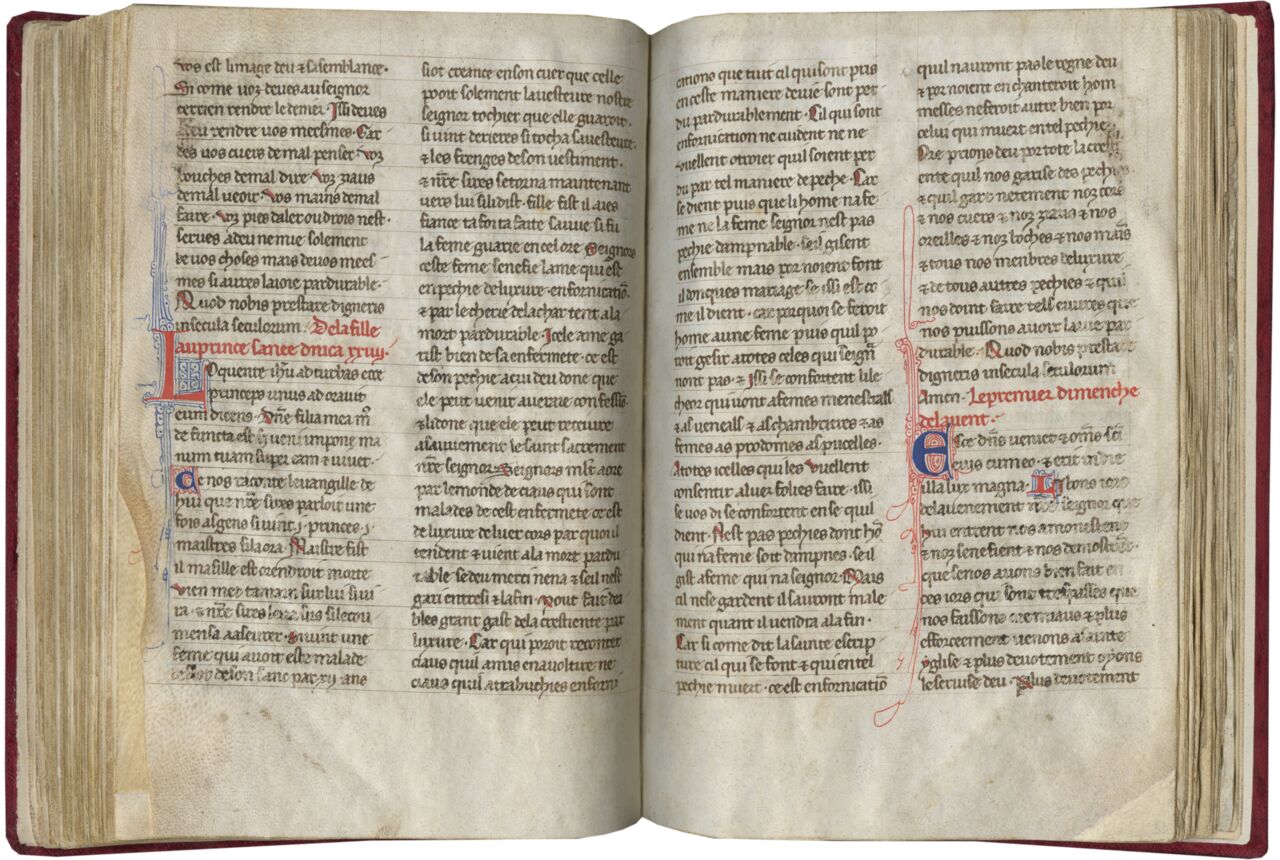 vos est limage deu & sa semblance·
Si come voz deves au seignor
terrien rendre le denier· Issi deves
a deu rendre vos meesmes· Car
des vos cuers de mal penser· voz
bouches de mal dire· voz iauz
de mal veoir· vos mains de mal
faire· voz piez daler ou drois nest·
serves a deu ne mie solement
de vos choses mais de vos mees
mes si aures la ioie pardurable·
Quod nobis prestare digneris
in secula seculorum· De la fille
au prince sanee dnica xxiiij·
Loquente ihu ad turbas ecce
princeps unus adoravit
eum dicens· Dne filia mea mo
de functa est sz veni impone ma
num tuam super eam & vivet·
Ce nos raconte levangille de
hui que nre sires parloit une
fois as gens si vint ·j· princes ·j·
maistres si laora· Maistre fist
il ma fille est orendroit morte
vien met ta main sur lui si vi
ra· & nre sires
mensa a aseurer· Si vint une
feme qui avoit este malade
de son sanc par xij ans
si ot creance en son cuer que celle
pooit solement la vesteure nostre
seignor tochier que elle garroit·
si vint derieres si tocha sa vesteure
& les frenges de son vestiment·
& nre sires se torna maintenant
vers lui si li dist· fille fist il aies
fiance ta foi ta faite sauve si fu
la feme guarie en cel ore· Seignors
ceste feme senefie lame qui est
en pechie de luxure· en fornicatio·
& par le cherie de la char tent a la
mort pardurable· Icele ame ga
rist bien de sa enfermete· ce est
de son pechie a cui deu done que
ele peut venir a veraie confessio·
& li done que ele peut recevire
a sauvement le saint sacrement
nre seignor· Seignors mlt a ore
par le monde de ciaus qui sont
malades de cest enfermete ce est
de luxure de luer cors par quoi il
tendent & vient a la mort pardu
rable· se deu merci nen a & seil nest
gari entresi & la fin· Mout fait dea
bles grant gast de la crestiente par
luxure· Car qui poroit reconter
ciaus quil a mis en avoltire ne
ciaus quil a trabuchies en forni
cations que tuit cil qui sont pris
en ceste maniere de vie sont per
du pardurablement· Cil qui sont
en fornication ne cuident ne ne
vuellent otroier quil soient per
du par tel maniere de peche· Car
se dient puis que li home na fe
me ne la feme seignor nest pas
pechie dampnable· seil gisent
ensemble mais por noient font
il donques mariage se issi est co
me il dient· car por quoi se feroit
home a une feme puis quil po
roit gesir a totes celes qui seigno
nont pas· & Issi se confortent li le
cheor qui vont a femes menestrals
& as venials & as chambrieres & as
femes as prodomes as pucelles·
A totes icelles qui les vuellent
consentir a luer folies faire· issi
se vos di se confortent en se quil
dient· Nest pas pechies dont ho
qui na feme soit dampnes· se il
gist a feme qui na seignor· Mais
cil ne se gardent il sauront male
ment quant il vendra a la fin·
Car si come dit la sainte escrip
ture cil qui se font & qui en tel
pechie muert· ce est en fornicatio
quil nauront pas le regne deu
& por noient en chanteroit hom
messes ne feroit autre bien por
celui qui muert en tel pechie·
Ore prions deu por tote la cresti
ente quil nos garise des pechies
& quil gart netement noz cors
& nos cuers & noz iauz & nos
oreilles & noz boches & nos mais
& tous nos menbres de luxure
& de tous autres pechies & quil
nos doint faire tels euvres que
nos puissons avoir la vie par
durable· Quod nobis prestare
digneris in secula seculorum
Amen· Le premier dimenche
de lavent·
Ecce dns veniet & oms sci
eius cum eo· & erit in die
illa lux magna· Li bons iors
de lavenement nre seignor que
hui entrent nos amonestent
& noz senefient & nos demostret·
que se nos avons bien fait en
ces iors qui sont trespasses que
nos faissons ore miaus & plus
efforcement venons a sainte
yglise & plus devotement oyons
le servise deu· Plus devotement